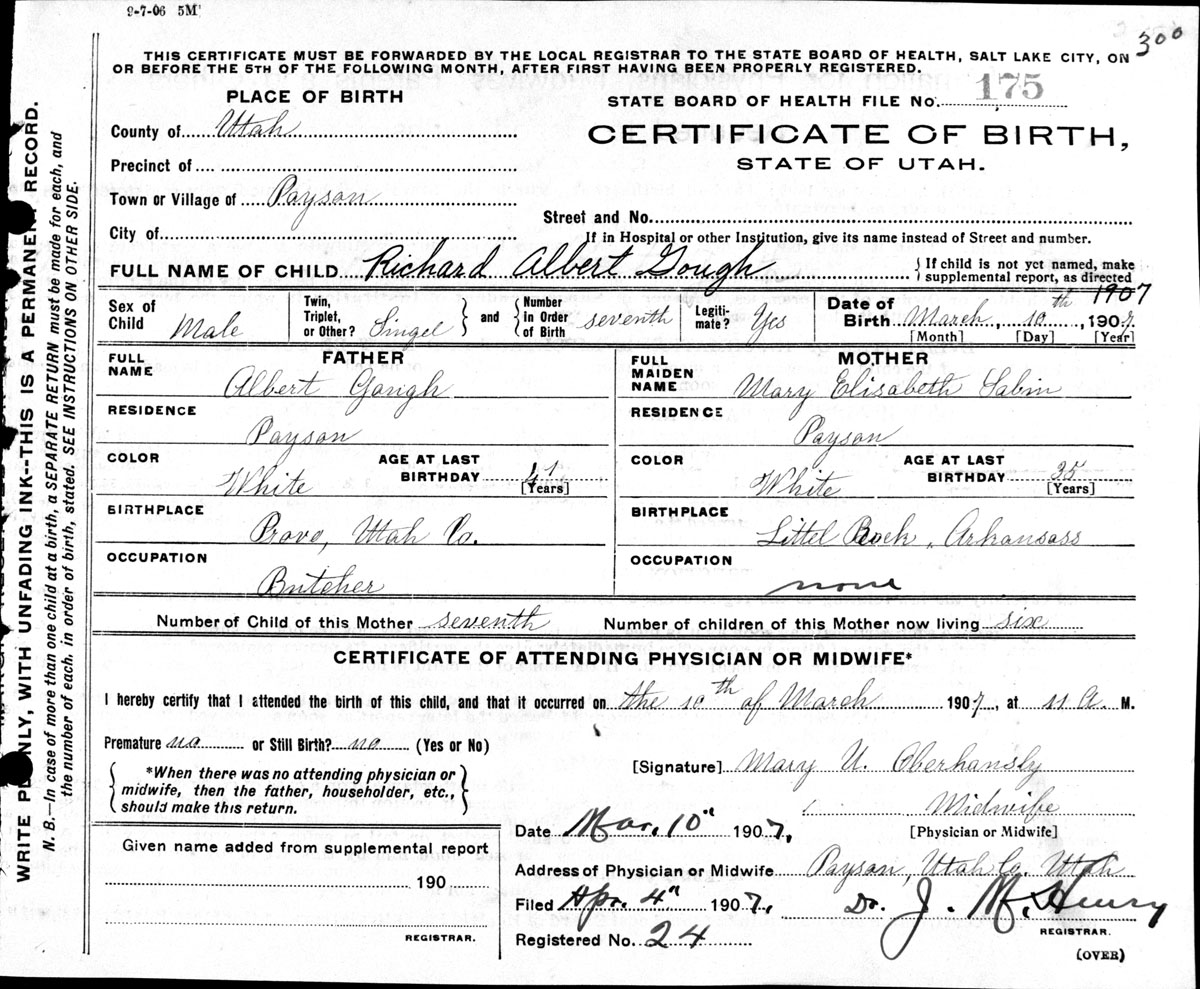 9-7-06 5M
300
THIS CERTIFICATE MUST BE FORWARDED BY THE LOCAL REGISTRAR TO THE STATE BOARD OF HEALTH, SALT LAKE CITY, ON
OR BEFORE THE 5TH OF THE FOLLOWING MONTH, AFTER FIRST HAVING BEEN PROPERLY REGISTERED.
PLACE OF BIRTH
STATE BOARD OF HEALTH FILE No. 175
County of Utah
CERTIFICATE OF BIRTH,
STATE OF UTAH.
Precinct of
Town or Village of Payson
Street and No.
City of
If in Hospital or other Institution, give its name instead of Street and number.
FULL NAME OF CHILD Richard Albert Gough
{If child is not yet named, make
supplemental report, as directed
1907
Sex of Child Male
Twin, Triplet, or Other? Singel } and { Number in Order of Birth seventh
Legiti-mate? Yes
Date of Birth March, 10th, 1907
[Month] [Day] [Year]
FATHER
FULL NAME
Albert Gough
RESIDENCE
Payson
COLOR
White
AGE AT LAST BIRTHDAY 41
[Years]
BIRTHPLACE
Provo, Utah Co.
OCCUPATION
Butcher
MOTHER
FULL MAIDEN NAME
Mary Elisabeth Sabin
RESIDENCE
Payson
COLOR
White
AGE AT LAST BIRTHDAY 35
[Years]
BIRTHPLACE
Littel Rock, Arkansass
OCCUPATION
none
Number of Child of this Mother seventh Number of children of this Mother now living six
CERTIFICATE OF ATTENDING PHYSICIAN OR MIDWIFE*
I hereby certify that I attended the birth of this child, and that it occurred on the 10th of March 1907, at 11 A. M.
Premature no or Still Birth? no (Yes or No)
{*When there was no attending physician or
midwife, then the father, householder, etc.,
should make this return.}
[Signature] Mary U. Oberhansly
Midwife
[Physician or Midwife]
Date Mar. 10" 1907,
Given name added from supplemental report
190
REGISTRAR.
Address of Physician or Midwife Payson, Utah Co. Utah
Filed Apr. 4" 1907, Dr. J. M. Henry
REGISTRAR.
Registered No. 24
(OVER)
WRITE PLAINLY, WITH UNFADING INK--THIS IS A PERMANENT RECORD.
N. B.—In case of more than one child at a birth, a SEPARATE RETURN must be made for each, and
the number of each, in order of birth, stated. SEE INSTRUCTIONS ON OTHER SIDE.